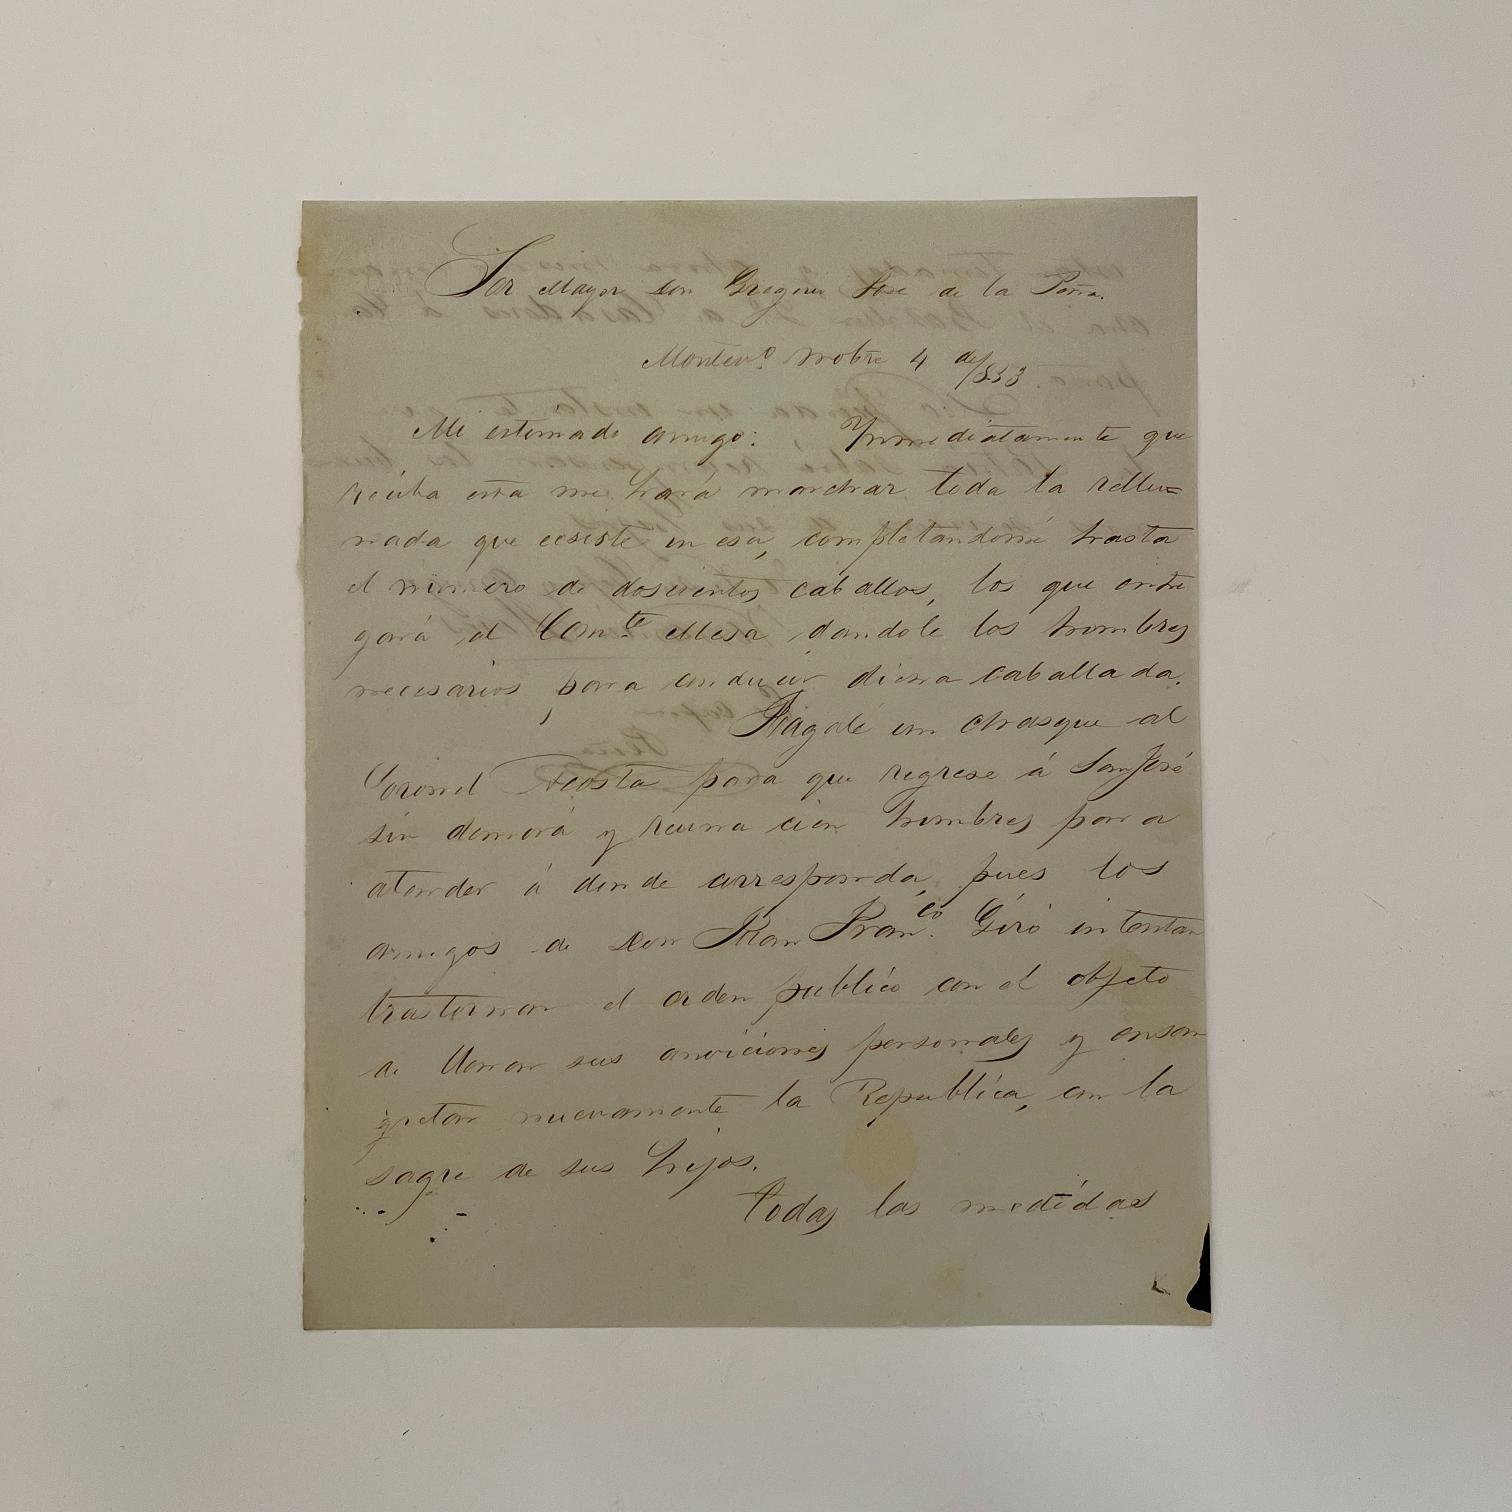 Sor Mayor don Gregorio José de la Peña.
Montevo. nobre 4 de/853
Mi estemado amigo: Ynmediatamente que
reciba esta me hará marchar toda la rellu=
nada que ecsiste en esa, completandomé hasta
el número de doscientos caballos, los que entre
gará al Comte Mesa dandole los hombres
necesarios para conducir dicha caballada.
Hagalé un chasque al
Coronel Acosta para que regrese á San José
sin demorá y reuna cien hombres para
atender á donde corresponda, pues los
amigos de Don Juan Franco. Giró intentan
trastornar el orden publico con el objeto
de llenar sus anviciones personales y ensan
gretar nuevamente la Republica, con la
sagre de sus hijos.
Todas las medidas